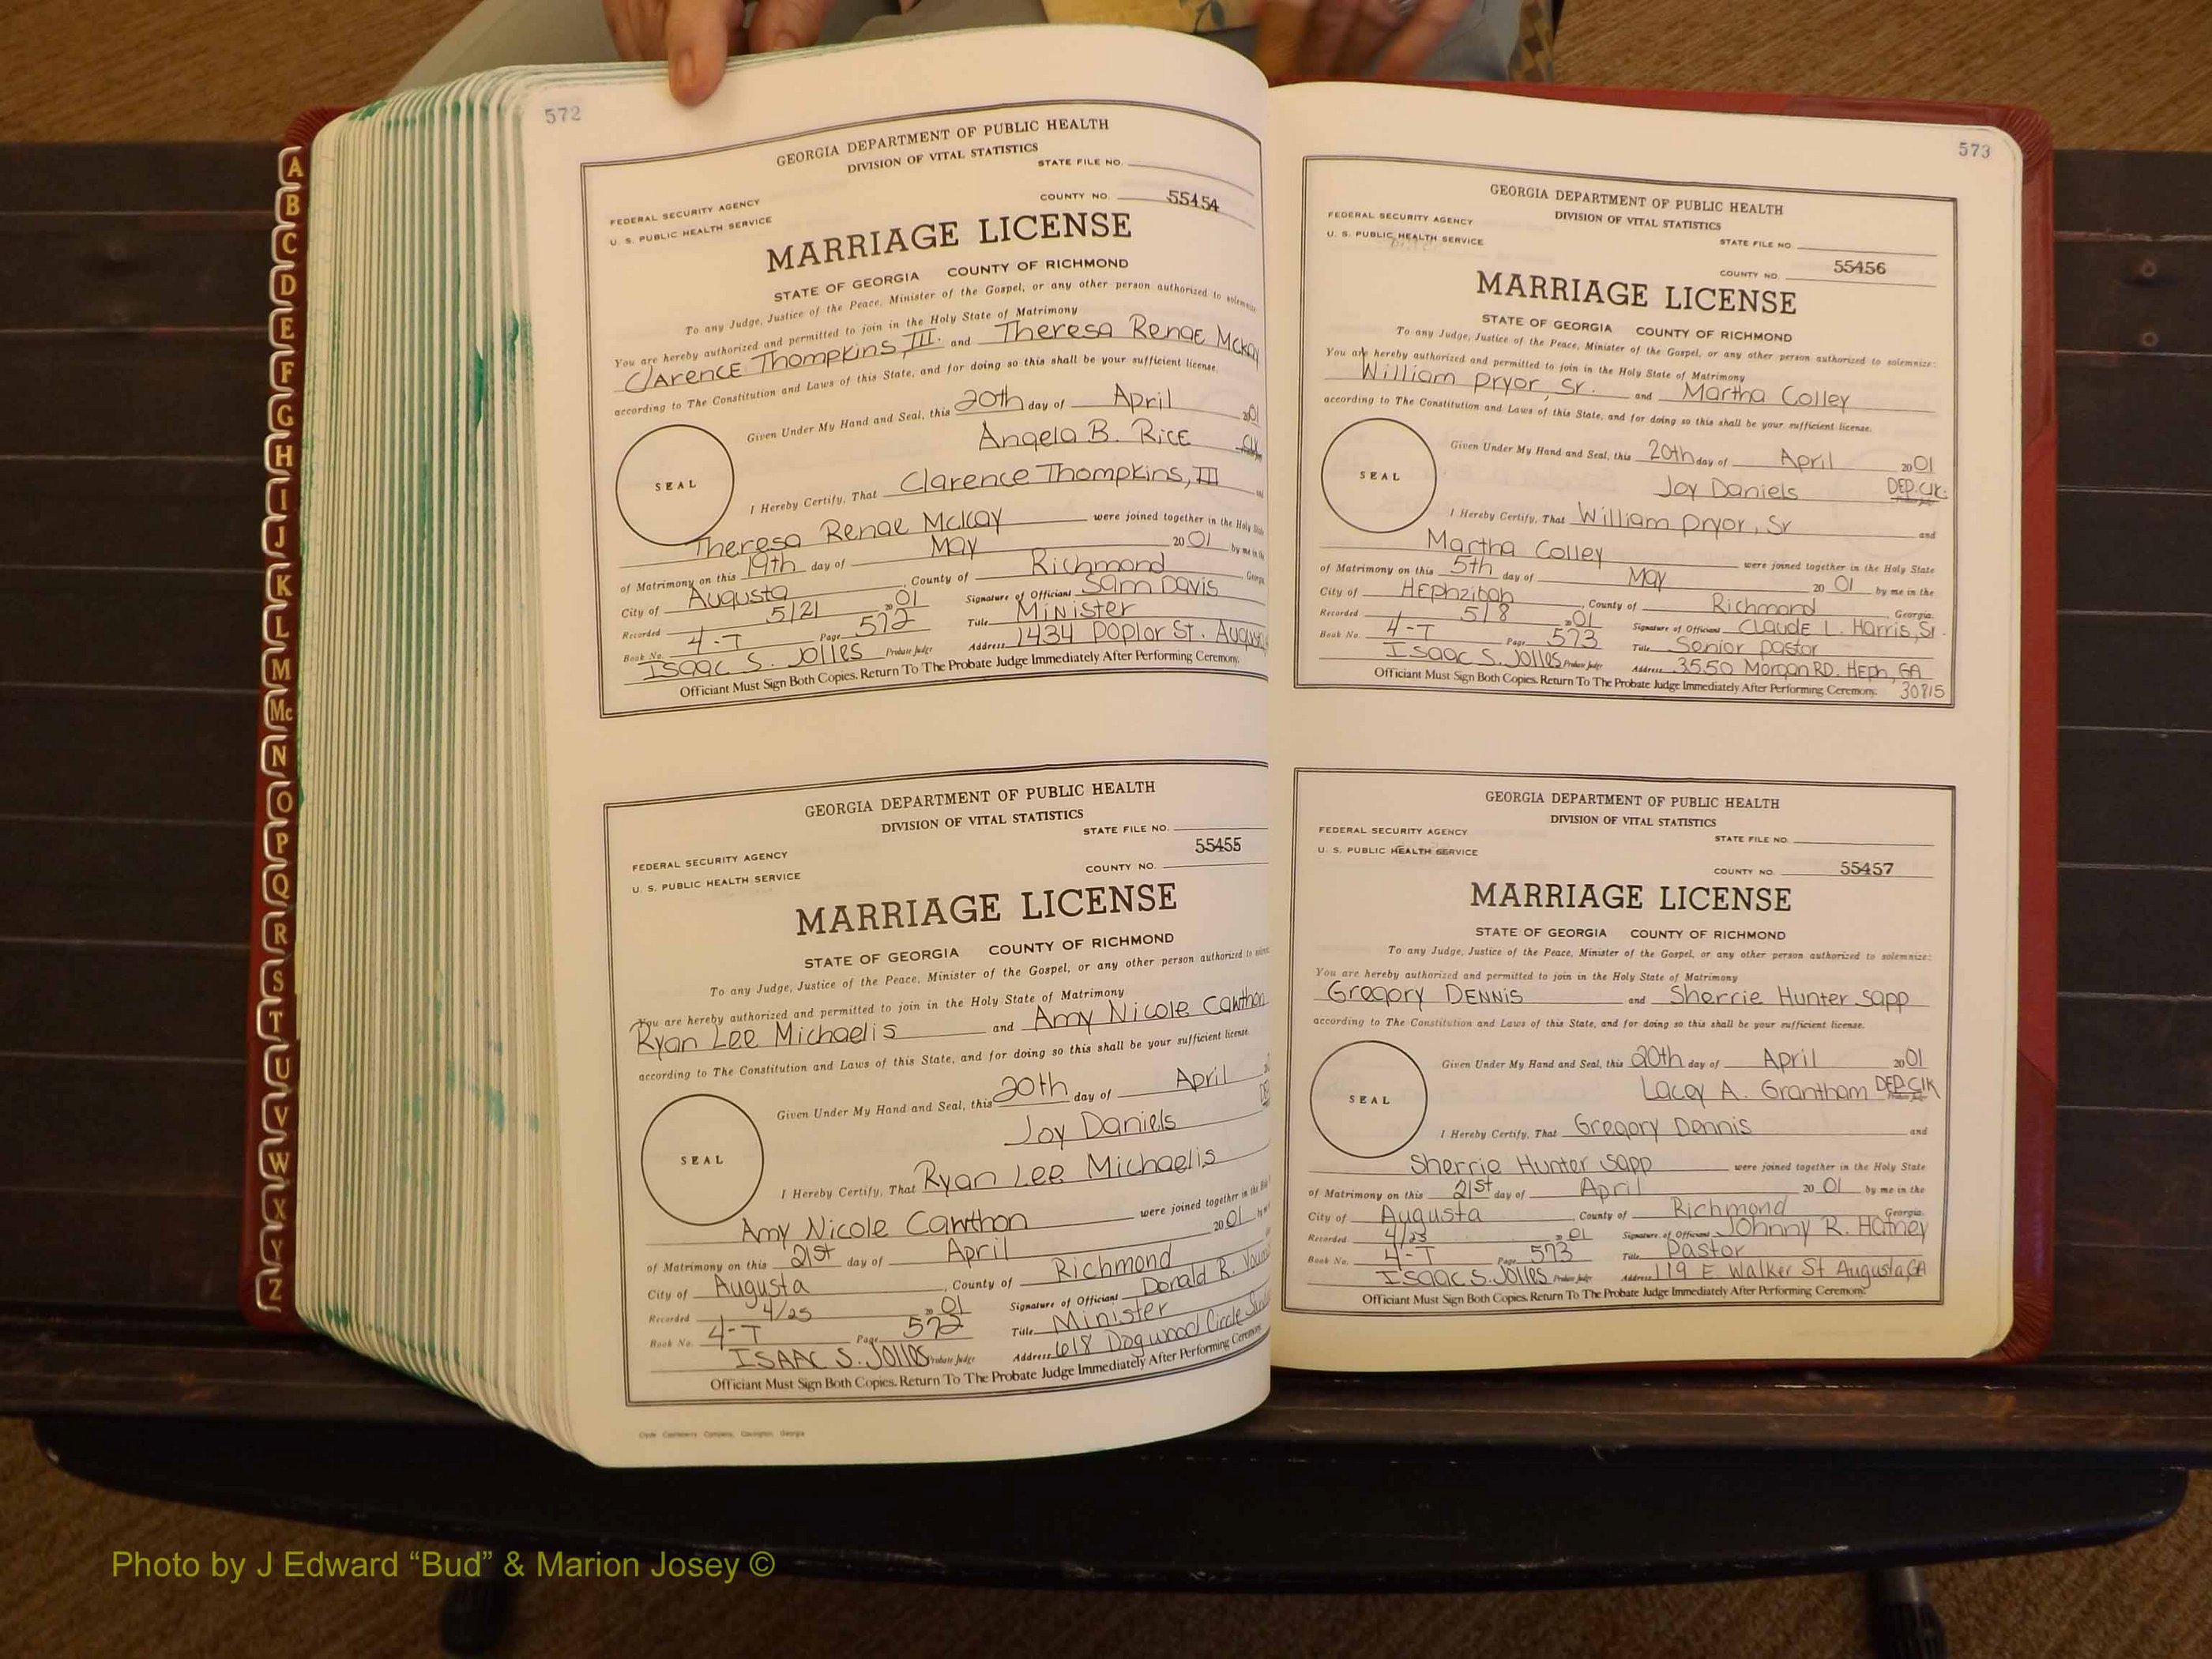 A
B
C
D
E
F
G
H
I
J
K
L
M
Mc
N
O
P
Q
R
S
T
U
V
W
X
Y
Z
572
GEORGIA DEPARTMENT OF PUBLIC HEALTH
DIVISION OF VITAL STATISTICS
STATE FILE NO.
FEDERAL SECURITY AGENCY
COUNTY NO. 55454
U. S. PUBLIC HEALTH SERVICE
MARRIAGE LICENSE
STATE OF GEORGIA COUNTY OF RICHMOND
To any Judge, Justice of the Peace, Minister of the Gospel, or any other person authorized to solemnize
You are hereby authorized and permitted to join in the Holy State of Matrimony
Clarence Thompkins, III. and Theresa Renae McKay
according to The Constitution and Laws of this State, and for doing so this shall be your sufficient license.
Given Under My Hand and Seal, this 20th day of April 2001
Angela B. Rice Clk
SEAL
I Hereby Certify, That Clarence Thompkins, III and
Theresa Renae McKay were joined together in the Holy State
of Matrimony on this 19th day of May 2001 by me in the
City of Augusta, County of Richmond Georgia
Recorded 5/21 2001 Signature of Official Sam Davis
Book No. 4-T Page 572 Title Minister
Isaac S. Jolles Probate Judge Address 1434 Poplar St. Augusta
Officiant Must Sign Both Copies. Return To The Probate Judge Immediately After Performing Ceremony.
GEORGIA DEPARTMENT OF PUBLIC HEALTH
DIVISION OF VITAL STATISTICS
STATE FILE NO.
FEDERAL SECURITY AGENCY
COUNTY NO. 55455
U. S. PUBLIC HEALTH SERVICE
MARRIAGE LICENSE
STATE OF GEORGIA COUNTY OF RICHMOND
To any Judge, Justice of the Peace, Minister of the Gospel, or any other person authorized to
You are hereby authorized and permitted to join in the Holy State of Matrimony
Ryan Lee Michaelis and Amy Nicole Cawthon
according to The Constitution and Laws of this State, and for doing so this shall be your sufficient license.
Given Under My Hand and Seal, this 20th day of April
Joy Daniels
SEAL
I Hereby Certify, That Ryan Lee Michaelis
Amy Nicole Cawthon were joined together in the
of Matrimony on this 21st day of April 2001 by
City of Augusta, County of Richmond
Recorded 4/25 2001 Signature of Official Donald R.
Book No. 4-T Page 572 Title Minister
ISAAC S. Jolles Probate Judge Address 618 Dogwood Circle
Officiant Must Sign Both Copies. Return To The Probate Judge Immediately After Performing Ceremony
573
GEORGIA DEPARTMENT OF PUBLIC HEALTH
DIVISION OF VITAL STATISTICS
FEDERAL SECURITY AGENCY
U. S. PUBLIC HEALTH SERVICE
STATE FILE NO.
COUNTY NO. 55456
MARRIAGE LICENSE
STATE OF GEORGIA COUNTY OF RICHMOND
To any Judge, Justice of the Peace, Minister of the Gospel, or any other person authorized to solemnize:
You are hereby authorized and permitted to join in the Holy State of Matrimony
William Pryor, Sr. and Martha Colley
according to The Constitution and Laws of this State, and for doing so this shall be your sufficient license.
Given Under My Hand and Seal, this 20th day of April 2001
Joy Daniels DEP. Clk.
SEAL
I Hereby Certify, That William Pryor, Sr and
Martha Colley were joined together in the Holy State
of Matrimony on this 5th day of May 2001 by me in the
City of Hephzibah, County of Richmond Georgia.
Recorded 5/8 2001 Signature of Official Claude L. Harris, Sr.
Book No. 4-T Page 573 Title Senior Pastor
Isaac S. Jolles Probate Judge Address 3550 Morgan RD. Heph, GA
Officiant Must Sign Both Copies. Return To The Probate Judge Immediately After Performing Ceremony. 30815
GEORGIA DEPARTMENT OF PUBLIC HEALTH
DIVISION OF VITAL STATISTICS
FEDERAL SECURITY AGENCY
STATE FILE NO.
U. S. PUBLIC HEALTH SERVICE
COUNTY NO. 55457
MARRIAGE LICENSE
STATE OF GEORGIA COUNTY OF RICHMOND
To any Judge, Justice of the Peace, Minister of the Gospel, or any other person authorized to solemnize:
You are hereby authorized and permitted to join in the Holy State of Matrimony
Gregory Dennis and Sherrie Hunter Sapp
according to The Constitution and Laws of this State, and for doing so this shall be your sufficient license.
Given Under My Hand and Seal, this 20th day of April 2001
Lacey A. Grantham DEP. Clk
SEAL
I Hereby Certify, That Gregory Dennis and
Sherrie Hunter Sapp were joined together in the Holy State
of Matrimony on this 21st day of April 2001 by me in the
City of Augusta, County of Richmond Georgia.
Recorded 4/25 2001 Signature of Official Johnny R. Hatney
Book No. 4-T Page 573 Title Pastor
Isaac S. Jolles Probate Judge Address 119 E Walker St Augusta, GA
Officiant Must Sign Both Copies. Return To The Probate Judge Immediately After Performing Ceremony.
Photo by J Edward “Bud” & Marion Josey ©